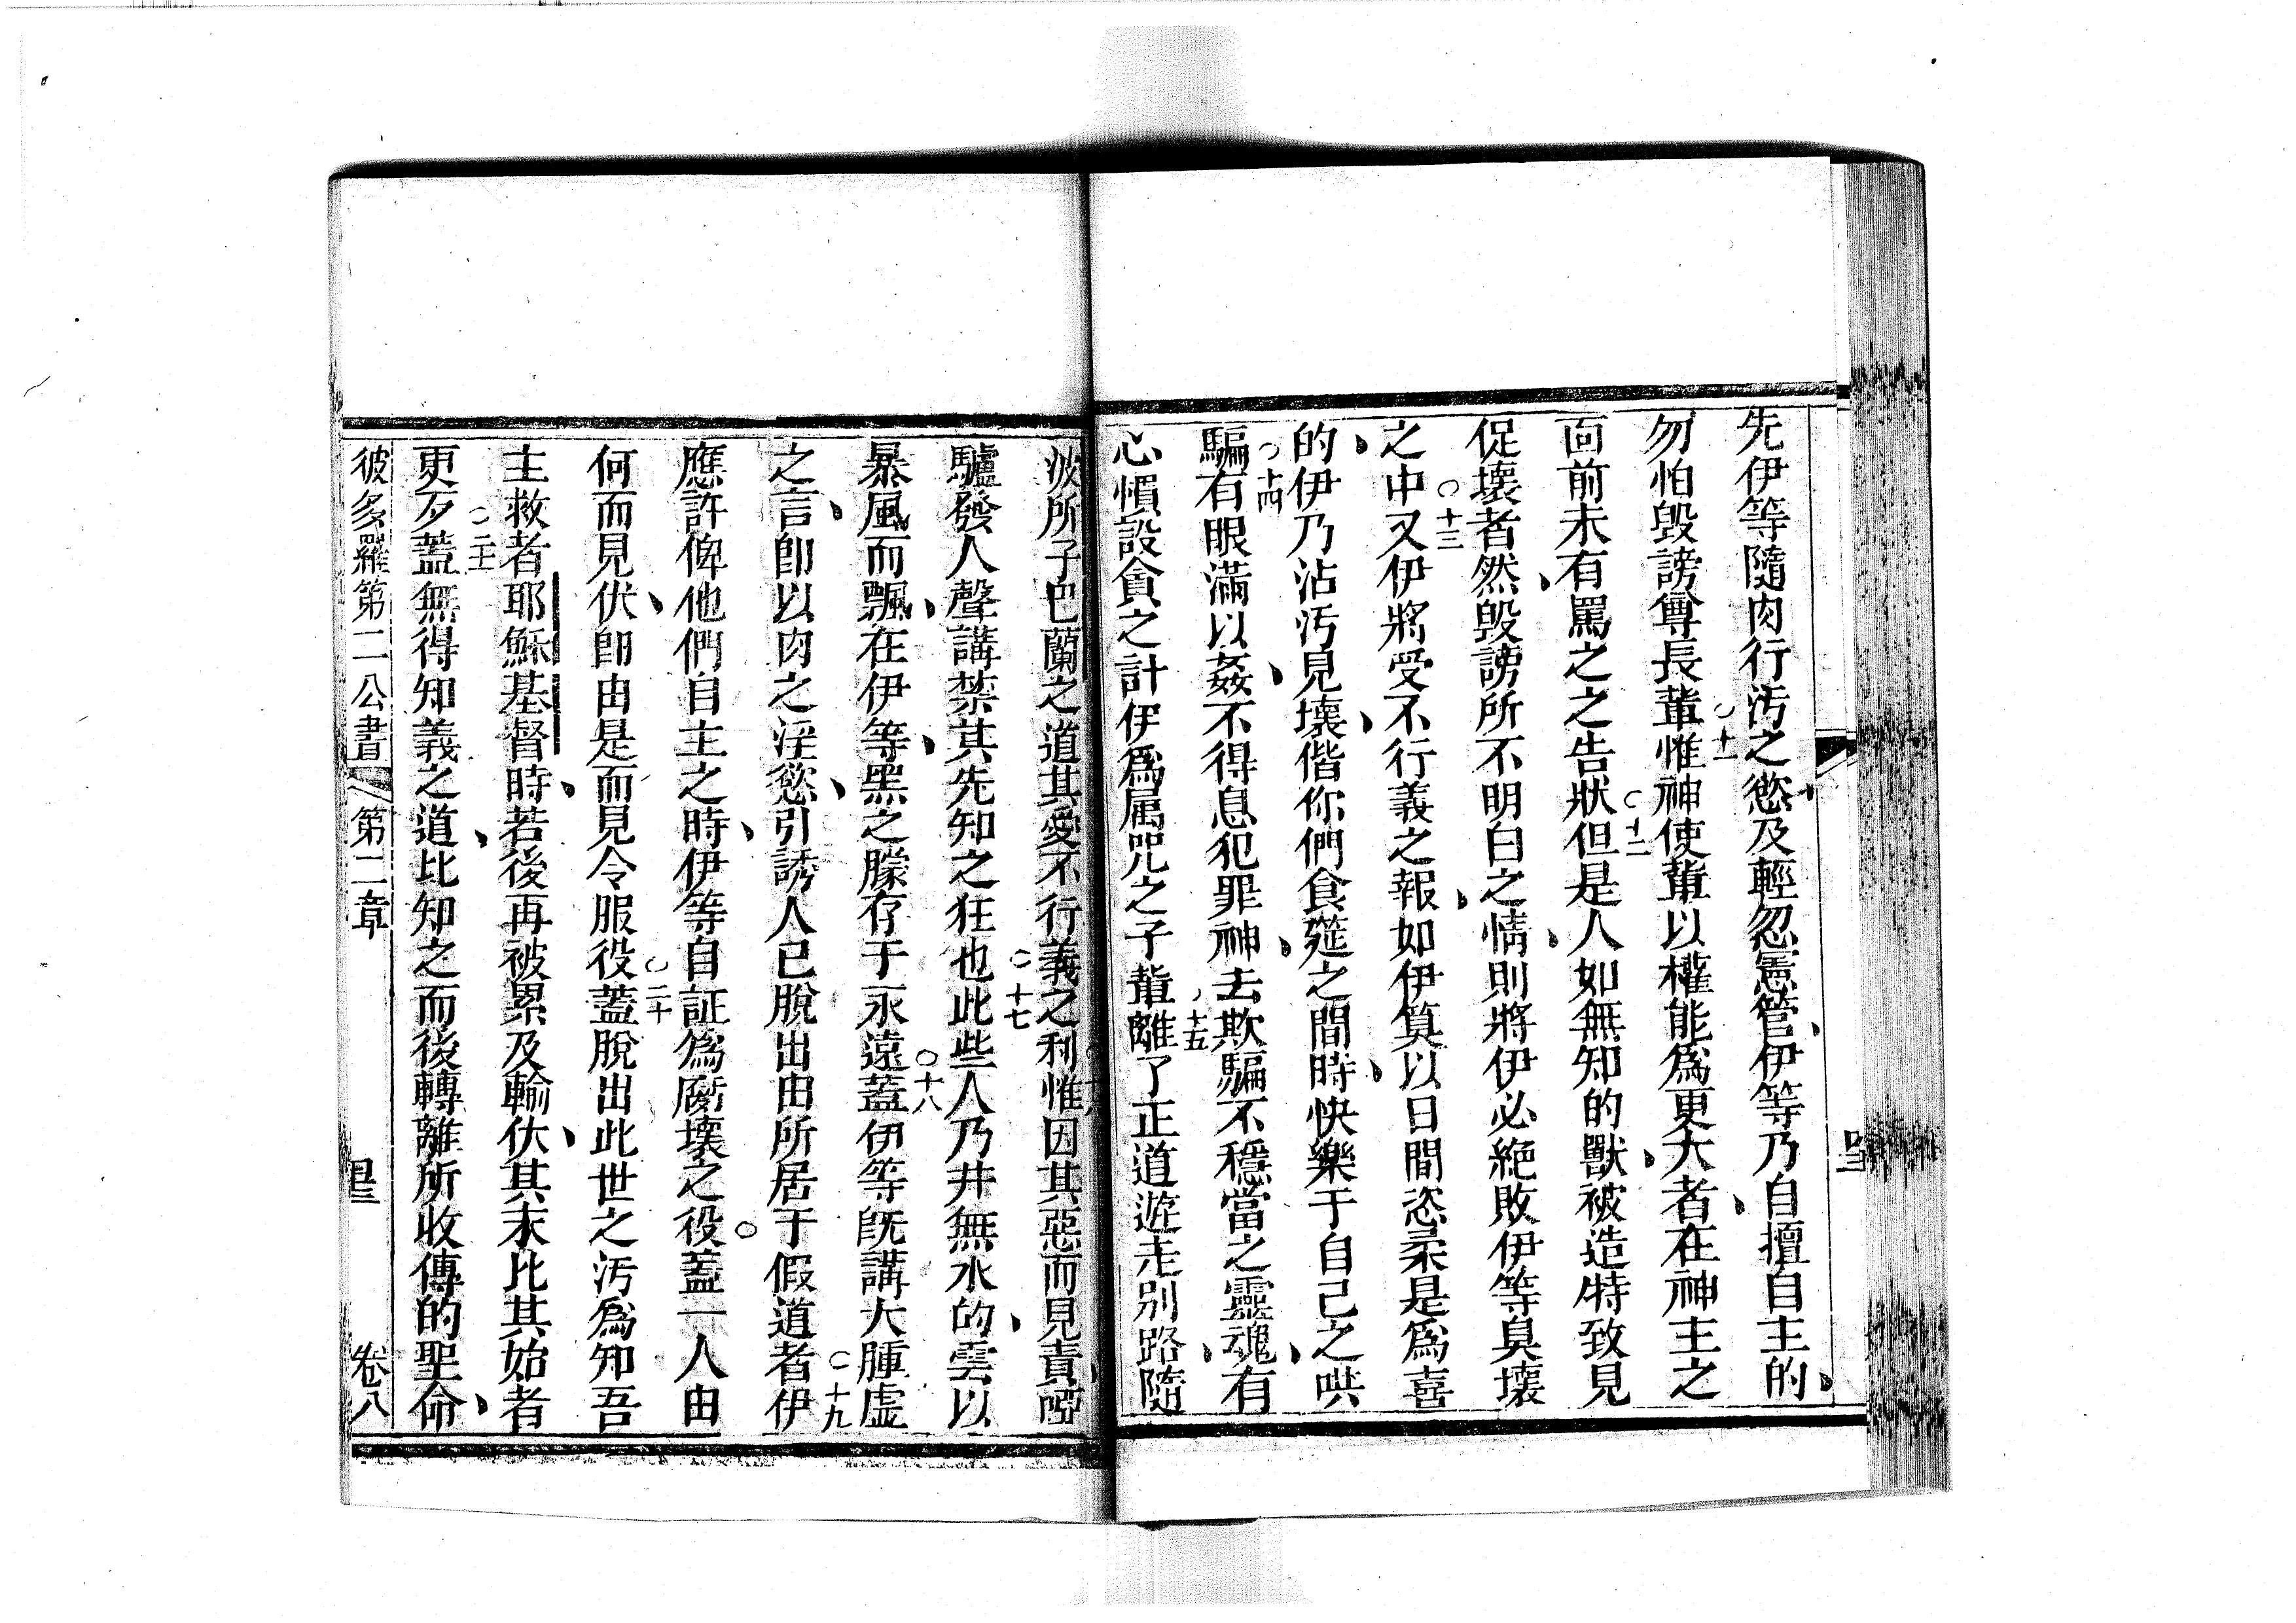 先伊等隨肉行汚之慾及輕忽憲管伊等乃自擅自主的
勿怕毀謗尊長輩○十一惟神使輩以權能爲更大者在神主之
面前未有罵之之告狀○十二但是人如無知的獸被造特致見
促壞者然毀謗所不明白之情則將伊必絕敗伊等臭壞
之中○十三又伊將受不行義之報如伊算以日間恣柔是爲喜
的伊乃沾汚見壞偕你們食筵之間時快樂于自己之哄
騙○十四有眼滿以姦不得息犯罪神去欺騙不穩當之靈魂有
心慣設貪之計伊爲属咒之子輩○十五離了正道遊走别路隨
波所子巴蘭之道其愛不行義之利○十六惟因其惡而見責啞
驢發人聲講禁其先知之狂也○十七此些人乃井無水的雲以
暴風而飄在伊等黑之朦存于永遠○十八蓋伊等旣講大腫虛
之言卽以肉之淫慾引誘人已脫出由所居于假道者○十九伊
應許俾他們自主之時伊等自証爲腐壞之役○蓋一人由
何而見伏卽由是而見令服役○二十蓋脫出此世之汚爲知吾
主救者耶穌基督時若後再被累及輸伏其末比其始者
更歹○二十一蓋無得知義之道比知之而後轉離所收傳的聖命
彼多羅第二公書 第二章 卷八